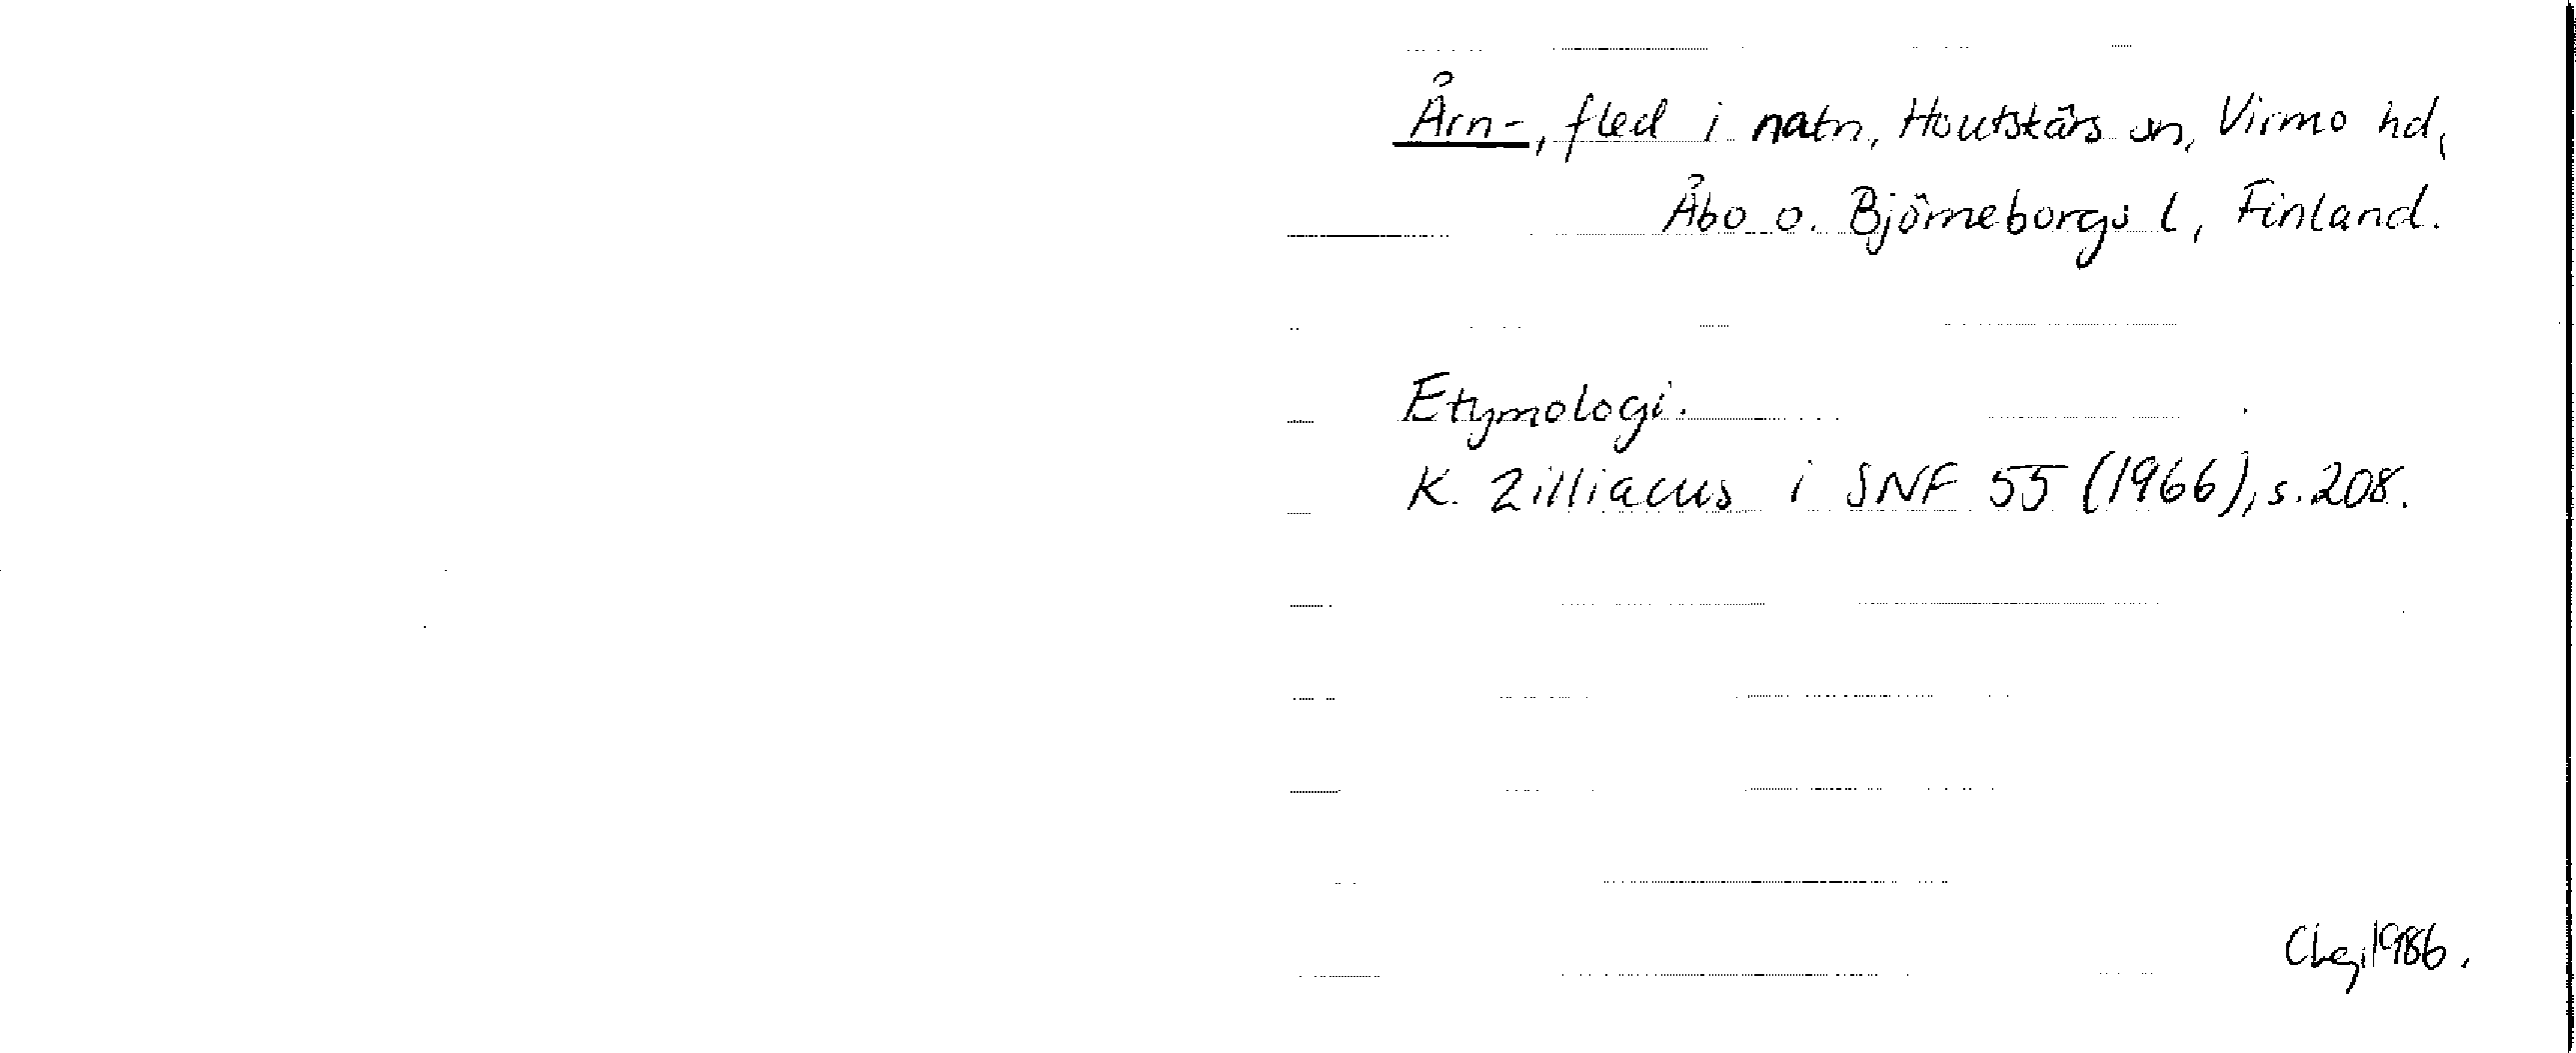 Årn-, fled i natn, Houtskärs sn, Virmo hd,
Åbo o. Björneborgs l, Finland.
Etymologi.
K. Zilliacus i SNF 55 (1966), s. 208.
1986.